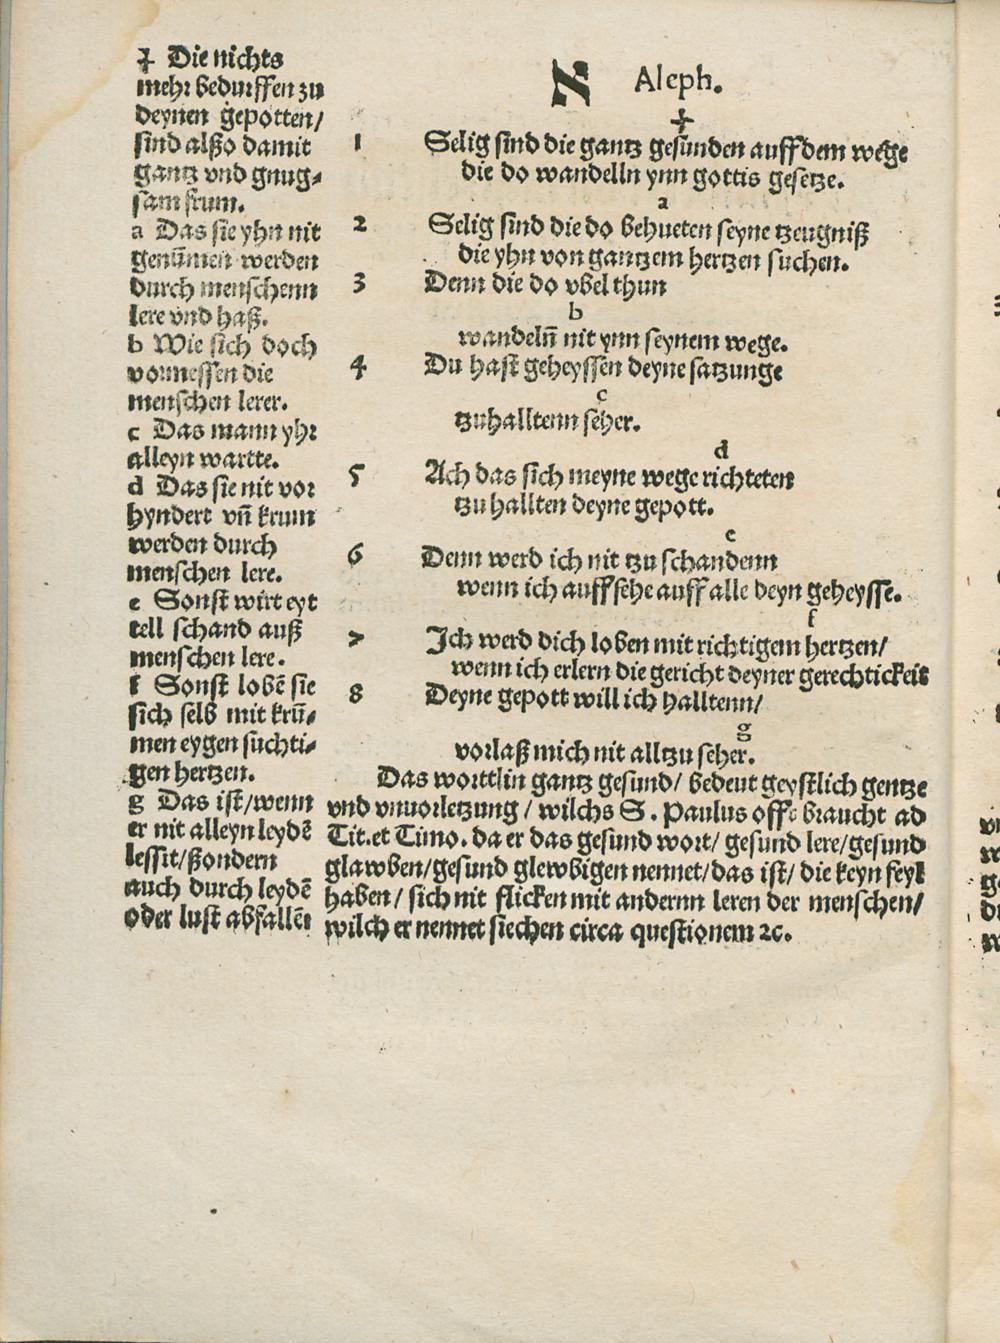 ‡ Die nichts
mehr bedurffen zu
deynen gepotten/
sind alßo damit
gantz vnd gnug⸗
sam frum.
a Das sie yhn nit
genūmen werden
durch menschenn
lere vnd haß.
b Wie sich doch
vormessen die
menschen lerer.
c Das mann yhr
alleyn wartte.
d Das sie nit vor
hyndert vn̄ krum
werden durch
menschen lere.
e Sonst wirt eyt
tell schand auß
menschen lere.
f Sonst lobē sie
sich selb mit krū⸗
men eygen suchti⸗
gen hertzen.
g Das ist/wenn
er nit alleyn leydē
lessit/ßondern
auch durch leydē
oder lust abfallen
א Aleph.
‡
1 Selig sind die gantz gesunden auff dem wege
die do wandelln ynn gottis gesetze.
a
2 Selig sind die do behueten seyne tzeugniß
die yhn von gantzem hertzen suchen.
3 Denn die do vbel thun
b
wandeln̄ nit ynn seynem wege.
4 Du hast geheyssen deyne satzunge
c
tzuhalltenn seher.
d
5 Ach das sich meyne wege richteten
tzu hallten deyne gepott.
e
6 Denn werd ich nit tzu schandenn
wenn ich auff sehe auff alle deyn geheysse.
f
7 Ich werd dich loben mit richtigem hertzen/
wenn ich erlern die gericht deyner gerechtickeit
8 Deyne gepott will ich halltenn/
g
vorlaß mich nit alltzu seher.
Das worttlin gantz gesund/ bedeut geystlich gentze
vnd vnuorletzung/ wilchs S. Paulus offt braucht ad
Tit.et Timo. da er das gesund wort/ gesund lere/gesund
glawben/gesund glewbigen nennet/das ist/ die keyn feyl
haben/ sich nit flicken mit andernn leren der menschen/
wilch er nennet siechen circa questionem ꝛc.